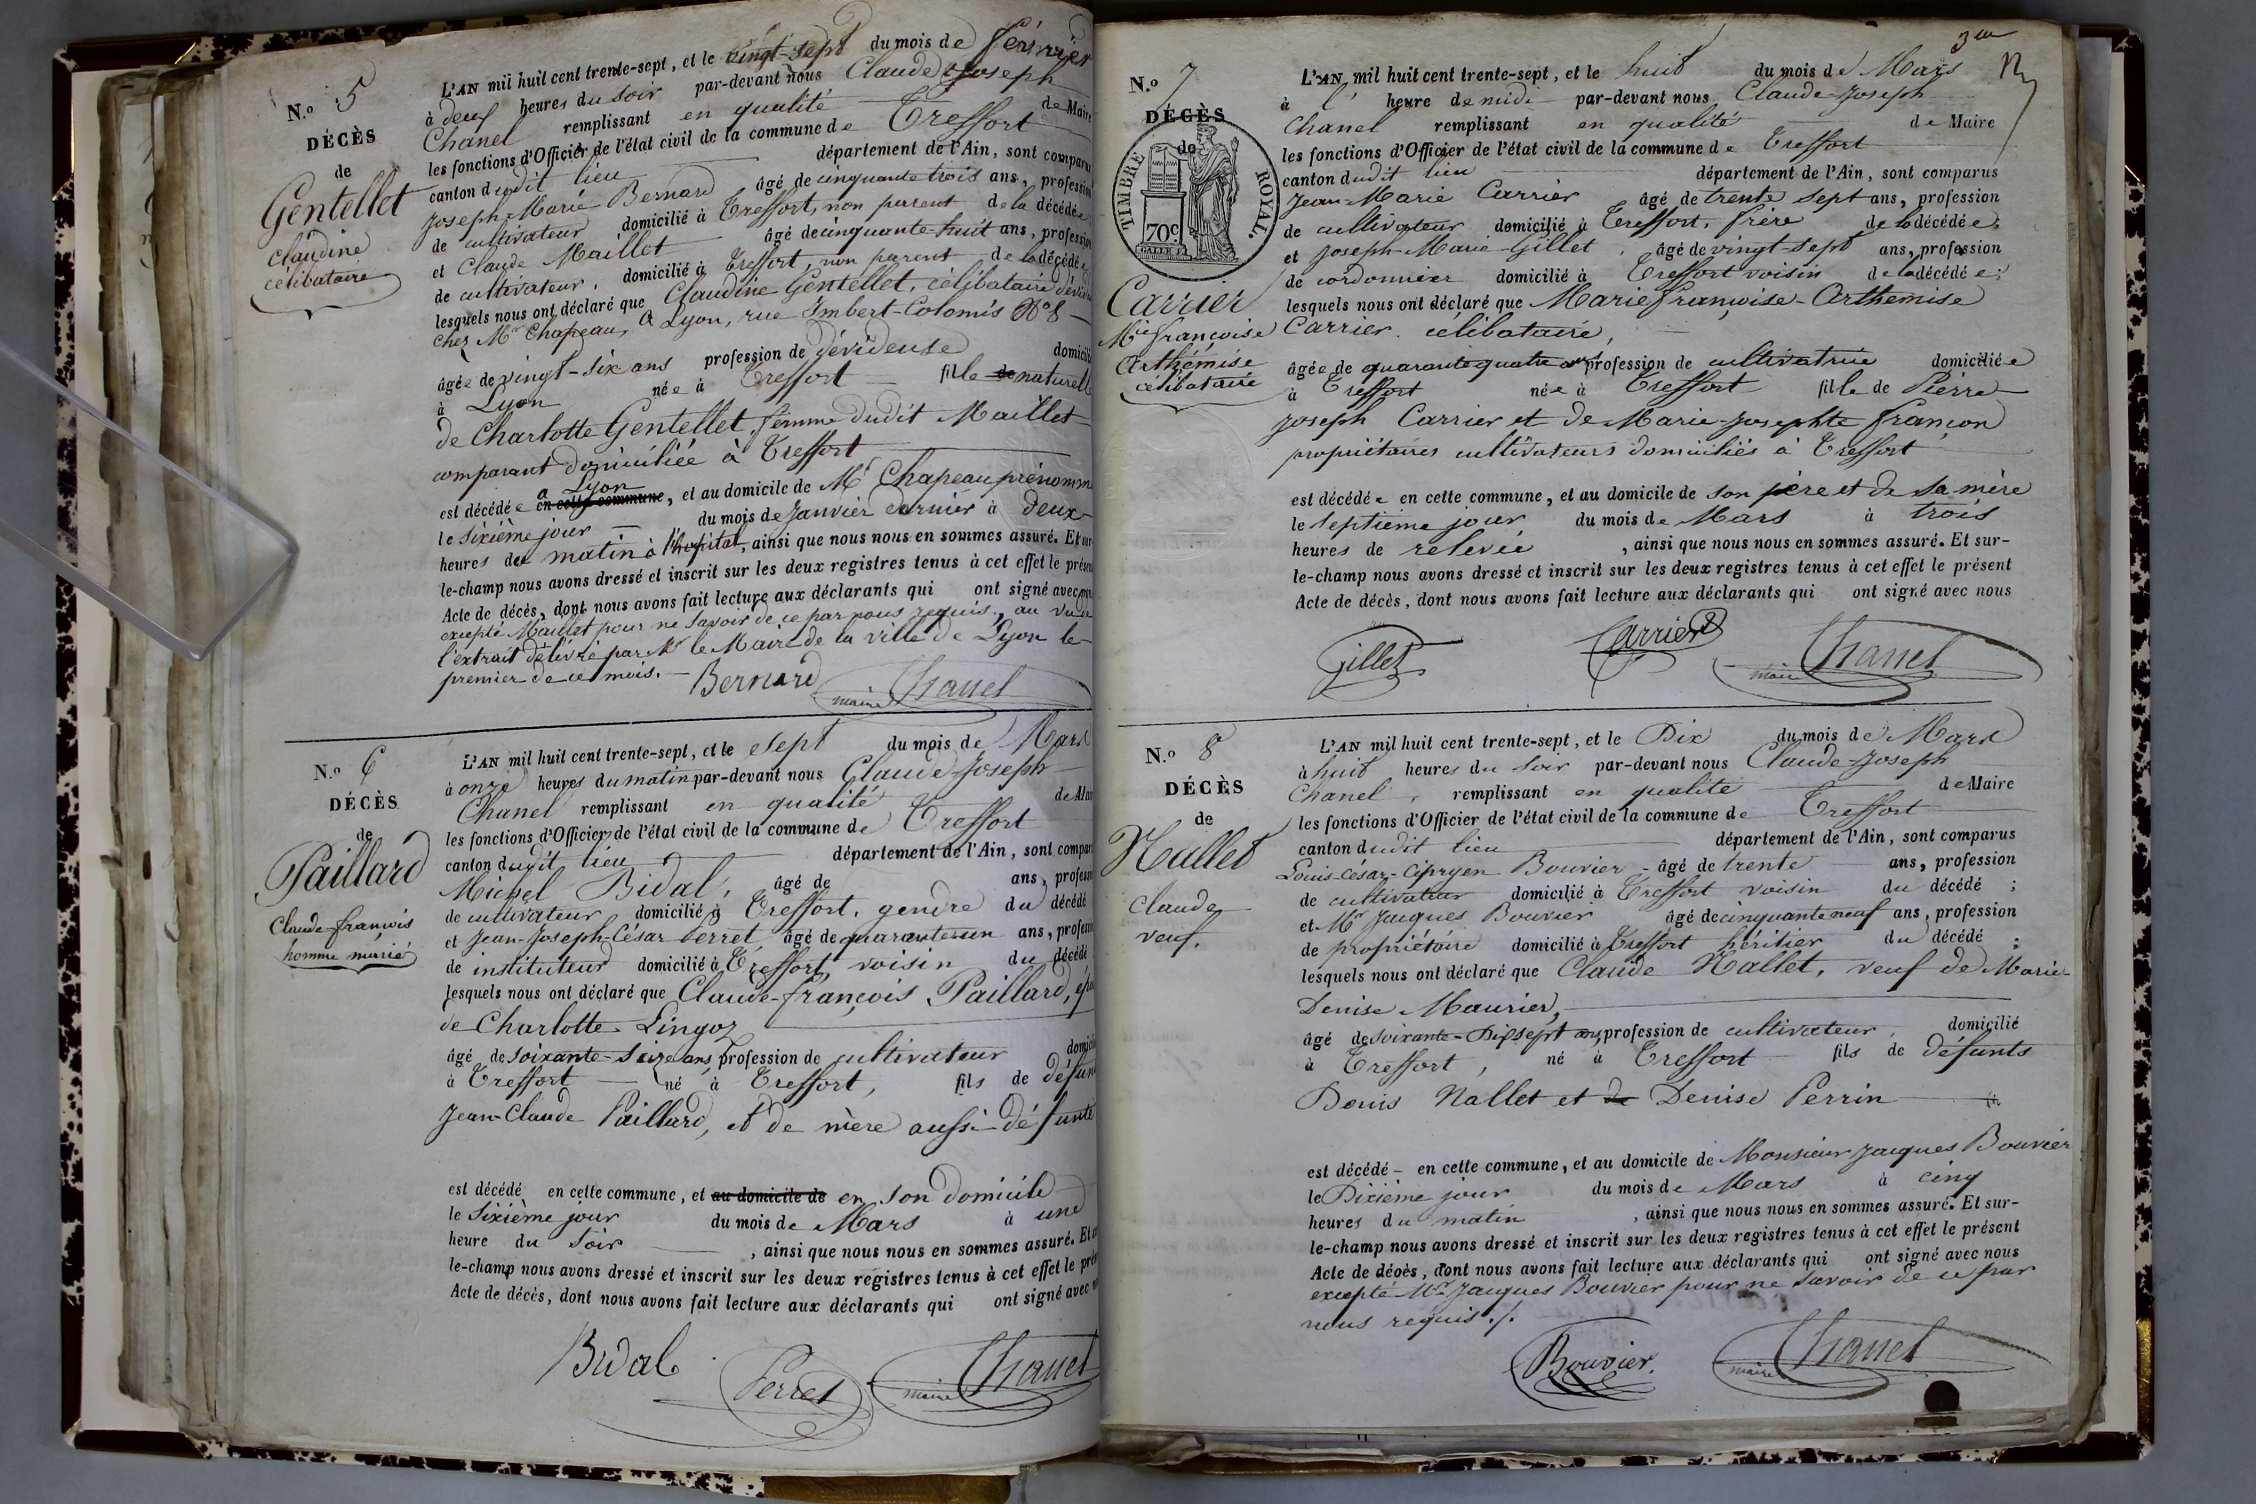 N.o 5
DÉCÈS
de
Gentellet
Claudine
célibataire
L'AN mil huit cent trente-sept, et le vingt-sept du mois de février
à deux heures du soir par-devant nous Claude Joseph
Chanel remplissant en qualité de Maire
les fonctions d'Officier de l'état civil de la commune de Treffort
canton dudit lieu département de l'Ain, sont comparus
Joseph-Marie Bernard âgé de cinquante trois ans, profession
de cultivateur domicilié à Treffort, non parent de la décédée
et Claude Maillet âgé de cinquante-huit ans, profession
de cultivateur, domicilié à Treffort, non parent de la décédée
lesquels nous ont déclaré que Claudine Gentellet, célibataire
chez Mr Chapeau, à Lyon, rue Imbert-Colomis No 8
âgée de vingt-six ans profession de dévideuse domiciliée
à Lyon née à Treffort fille de naturelle
de Charlotte Gentellet, femme dudit Maillet
comparant domiciliée à Treffort
à Lyon
est décédée en cette commune, et au domicile de Mr Chapeau prénommé
le sixième jour du mois de Janvier dernier à deux
heures du matin à l'hopital, ainsi que nous nous en sommes assuré. Et sur-
le-champ nous avons dressé et inscrit sur les deux registres tenus à cet effet le présent
Acte de décès, dont nous avons fait lecture aux déclarants qui ont signé avec nous
excepté Maillet pour ne savoir de ce par nous requis, au vu de
l'extrait délivré par Mr le Maire de la ville de Lyon le
premier de ce mois.
Bernard maire Chanel
N.o 6
DÉCÈS
de
Paillard
Claude-françois
homme marié
L'AN mil huit cent trente-sept, et le sept du mois de Mars
à onze heures du matin par-devant nous Claude-Joseph
Chanel remplissant en qualité de Maire
les fonctions d'Officier de l'état civil de la commune de Treffort
canton dudit lieu département de l'Ain, sont comparus
Michel Bidal, âgé de ans, profession
de cultivateur domicilié à Treffort, gendre du décédé
et Jean-Joseph-César Perret, âgé de quarante un ans, profession
de instituteur domicilié à Treffort, voisin du décédé
lesquels nous ont déclaré que Claude-françois Paillard, époux
de Charlotte Lingoz
âgé de soixante-seize ans profession de cultivateur domicilié
à Treffort né à Treffort, fils de défunt
Jean-Claude Paillard, et de mère aussi défunte
est décédé en cette commune, et au domicile de en son domicile
le sixième jour du mois de Mars à une
heure du soir, ainsi que nous nous en sommes assuré. Et sur-
le-champ nous avons dressé et inscrit sur les deux registres tenus à cet effet le présent
Acte de décès, dont nous avons fait lecture aux déclarants qui ont signé avec nous
Bidal Perret maire Chanel
N.o 7
DÉCÈS
de
TIMBRE ROYAL.
70c
Carrier
Mie françoise
Arthémise
célibataire
L'AN mil huit cent trente-sept, et le huit du mois de Mars
à l' heure de midi par-devant nous Claude-Joseph
Chanel remplissant en qualité de Maire
les fonctions d'Officier de l'état civil de la commune de Treffort
canton dudit lieu département de l'Ain, sont comparus
Jean-Marie Carrier âgé de trente sept ans, profession
de cultivateur domicilié à Treffort, frère de la décédée;
et Joseph-Marie Gillet, âgé de vingt-sept ans, profession
de cordonnier domicilié à Treffort voisin de la décédée;
lesquels nous ont déclaré que Marie françoise-Arthemise
Carrier célibataire,
âgée de quarante quatre ans profession de cultivatrice domiciliée
à Treffort née à Treffort fille de Pierre
Joseph Carrier et de Marie-Josephte françon
propriétaires cultivateurs domiciliés à Treffort
est décédée en cette commune, et au domicile de son père et de sa mère
le septième jour du mois de Mars à trois
heures de relevée, ainsi que nous nous en sommes assuré. Et sur-
le-champ nous avons dressé et inscrit sur les deux registres tenus à cet effet le présent
Acte de décès, dont nous avons fait lecture aux déclarants qui ont signé avec nous
Gillet Carrier maire Chanel
N.o 8
DÉCÈS
de
Nallet
Claude
veuf.
L'AN mil huit cent trente-sept, et le Dix du mois de Mars
à huit heures du soir par-devant nous Claude-Joseph
Chanel, remplissant en qualité de Maire
les fonctions d'Officier de l'état civil de la commune de Treffort
canton dudit lieu département de l'Ain, sont comparus
Louis-César-Cipryen Bouvier - âgé de trente ans, profession
de cultivateur domicilié à Treffort voisin du décédé;
et Mr Jacques Bouvier âgé de cinquante neuf ans, profession
de propriétaire domicilié à Treffort héritier du décédé;
lesquels nous ont déclaré que Claude Nallet, veuf de Marie-
Denise Maurier,
âgé de soixante-Dix sept ans profession de cultivateur, domicilié
à Treffort, né à Treffort fils de défunts
Denis Nallet et de Denise Perrin
est décédé en cette commune, et au domicile de Monsieur Jacques Bouvier
le Dixième jour du mois de Mars à cinq
heures du matin, ainsi que nous nous en sommes assuré. Et sur-
le-champ nous avons dressé et inscrit sur les deux registres tenus à cet effet le présent
Acte de décès, dont nous avons fait lecture aux déclarants qui ont signé avec nous
excepté Mr Jacques Bouvier pour ne savoir de ce par
nous requis./.
Bouvier. maire Chanel